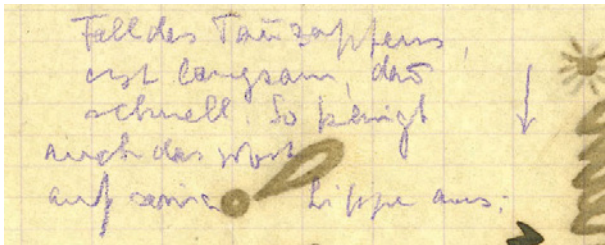 Fall des Tannzapfens,
erst langsam, dan
schnell. So
auch das Wort
auf seine Lippe aus: